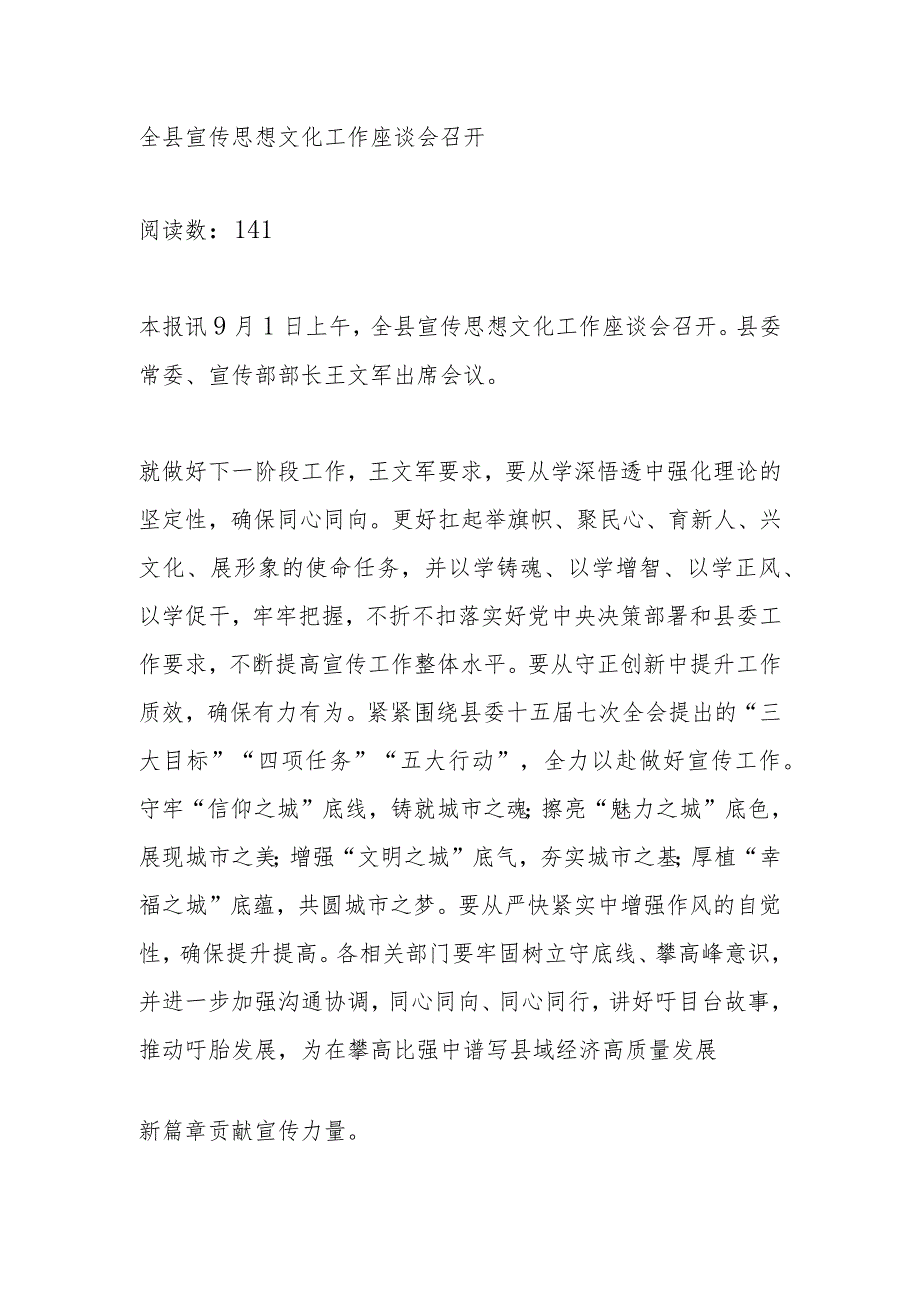 全县宣传思想文化工作座谈会召开
阅读数：141
本报讯9月1日上午，全县宣传思想文化工作座谈会召开。县委
常委、宣传部部长王文军出席会议。
就做好下一阶段工作，王文军要求，要从学深悟透中强化理论的
坚定性，确保同心同向。更好扛起举旗帜、聚民心、育新人、兴
文化、展形象的使命任务，并以学铸魂、以学增智、以学正风、
以学促干，牢牢把握，不折不扣落实好党中央决策部署和县委工
作要求，不断提高宣传工作整体水平。要从守正创新中提升工作
质效，确保有力有为。紧紧围绕县委十五届七次全会提出的“三
大目标”“四项任务”“五大行动”，全力以赴做好宣传工作。
守牢“信仰之城”底线，铸就城市之魂；擦亮“魅力之城”底色，
展现城市之美；增强“文明之城”底气，夯实城市之基；厚植“幸
福之城”底蕴，共圆城市之梦。要从严快紧实中增强作风的自觉
性，确保提升提高。各相关部门要牢固树立守底线、攀高峰意识，
并进一步加强沟通协调，同心同向、同心同行，讲好吁目台故事，
推动吁胎发展，为在攀高比强中谱写县域经济高质量发展
新篇章贡献宣传力量。